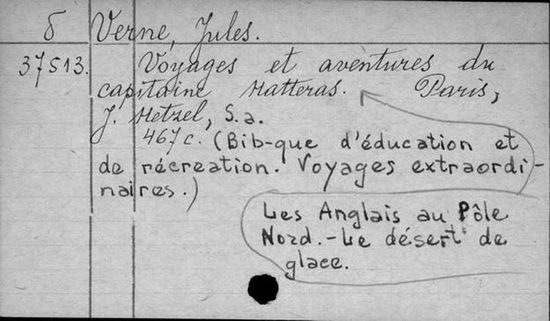 δ Verne, Jules.
37513. Voyages et aventures du
capitaine Hatteras. Paris,
J. Hetzel, S.a.
467c. (Bib-que d'éducation et
de récreation. Voyages extraordi-
naires.)
Les Anglais au Pôle
Nord.-Le désert de
glace.